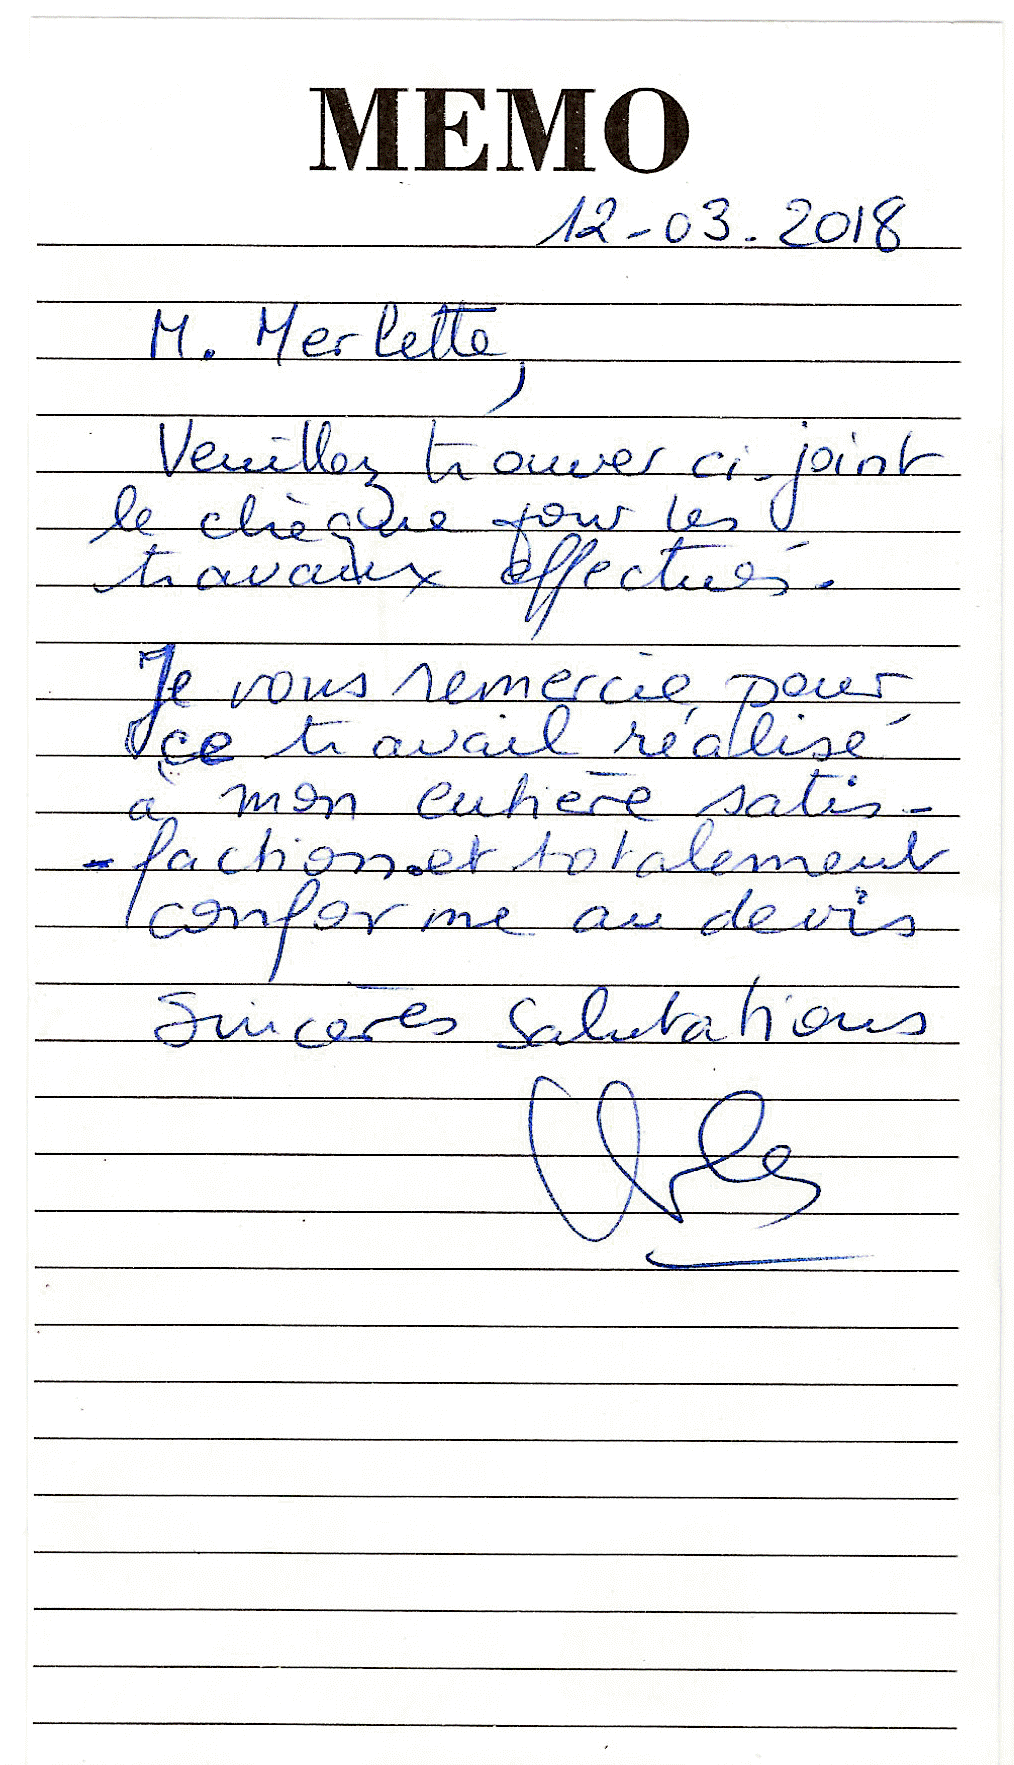 MEMO
12-03.2018
M. Merlette,
Veuillez trouver ci-joint
le chèque pour les
travaux effectués.
Je vous remercie pour
ce travail réalisé
à mon entière satis-
-faction et totalement
conforme au devis
Sincères Salutations